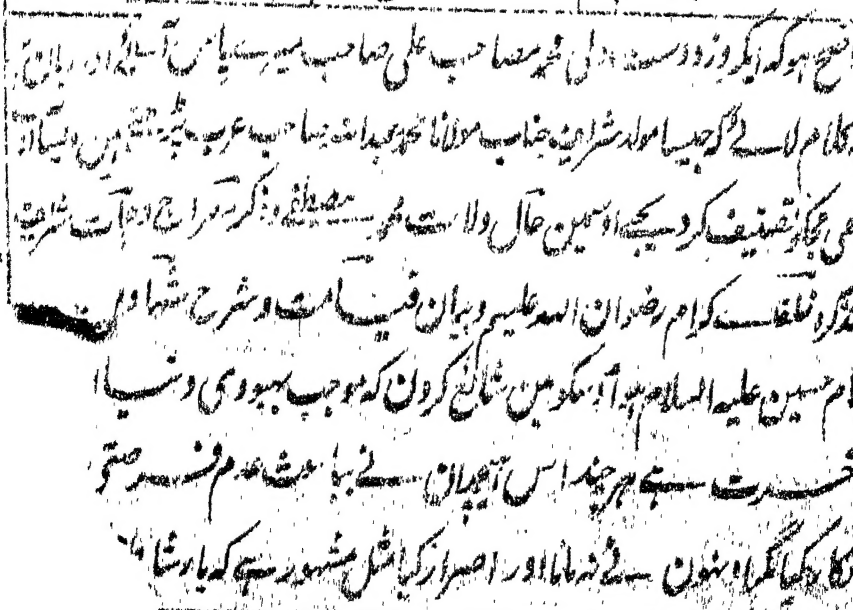 واضح ہو کہ ایک روز دوست دلی محمد مصاحب علی صاحب میرے پاس آئے اور زبان پر
کلام لائے کہ جیسا مولد شریف جناب مولانا محمد عبداللہ صاحب عرب
بھی مجکو تصنیف کردیجیے اوسمین حال ولادت محمد مصطفے و ذکر معراج و وفات شریف
تذکرہ خلفائے کرام رضوان اللہ علیہم و بیان قیامت و شرح شہادت
امام حسین علیہ السلام ہو اوسکو مین شائع کرون کہ موجب بہبودی دنیا
ہے ہر چند اس ہیچمدان نے بباعث عدم فرصتی
انکار کیا مگر اونہون نے نہ مانا اور اصرار کیا مثل مشہور ہے کہ